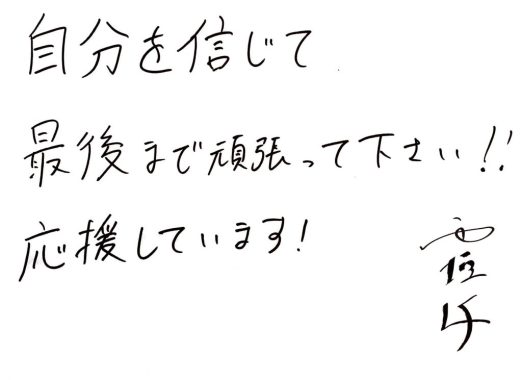 自分を信じて
最後まで頑張って下さい!!
応援しています!